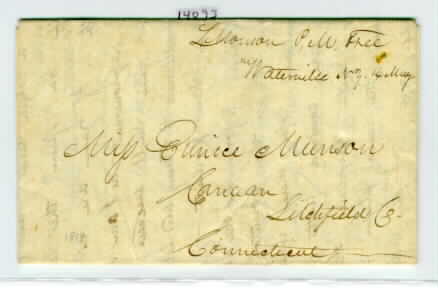 14093
P.M. Free
Waterville N.Y. 14 May
Miss Eunice Munson
Canaan
Litchfield Co.
Connecticut
1819